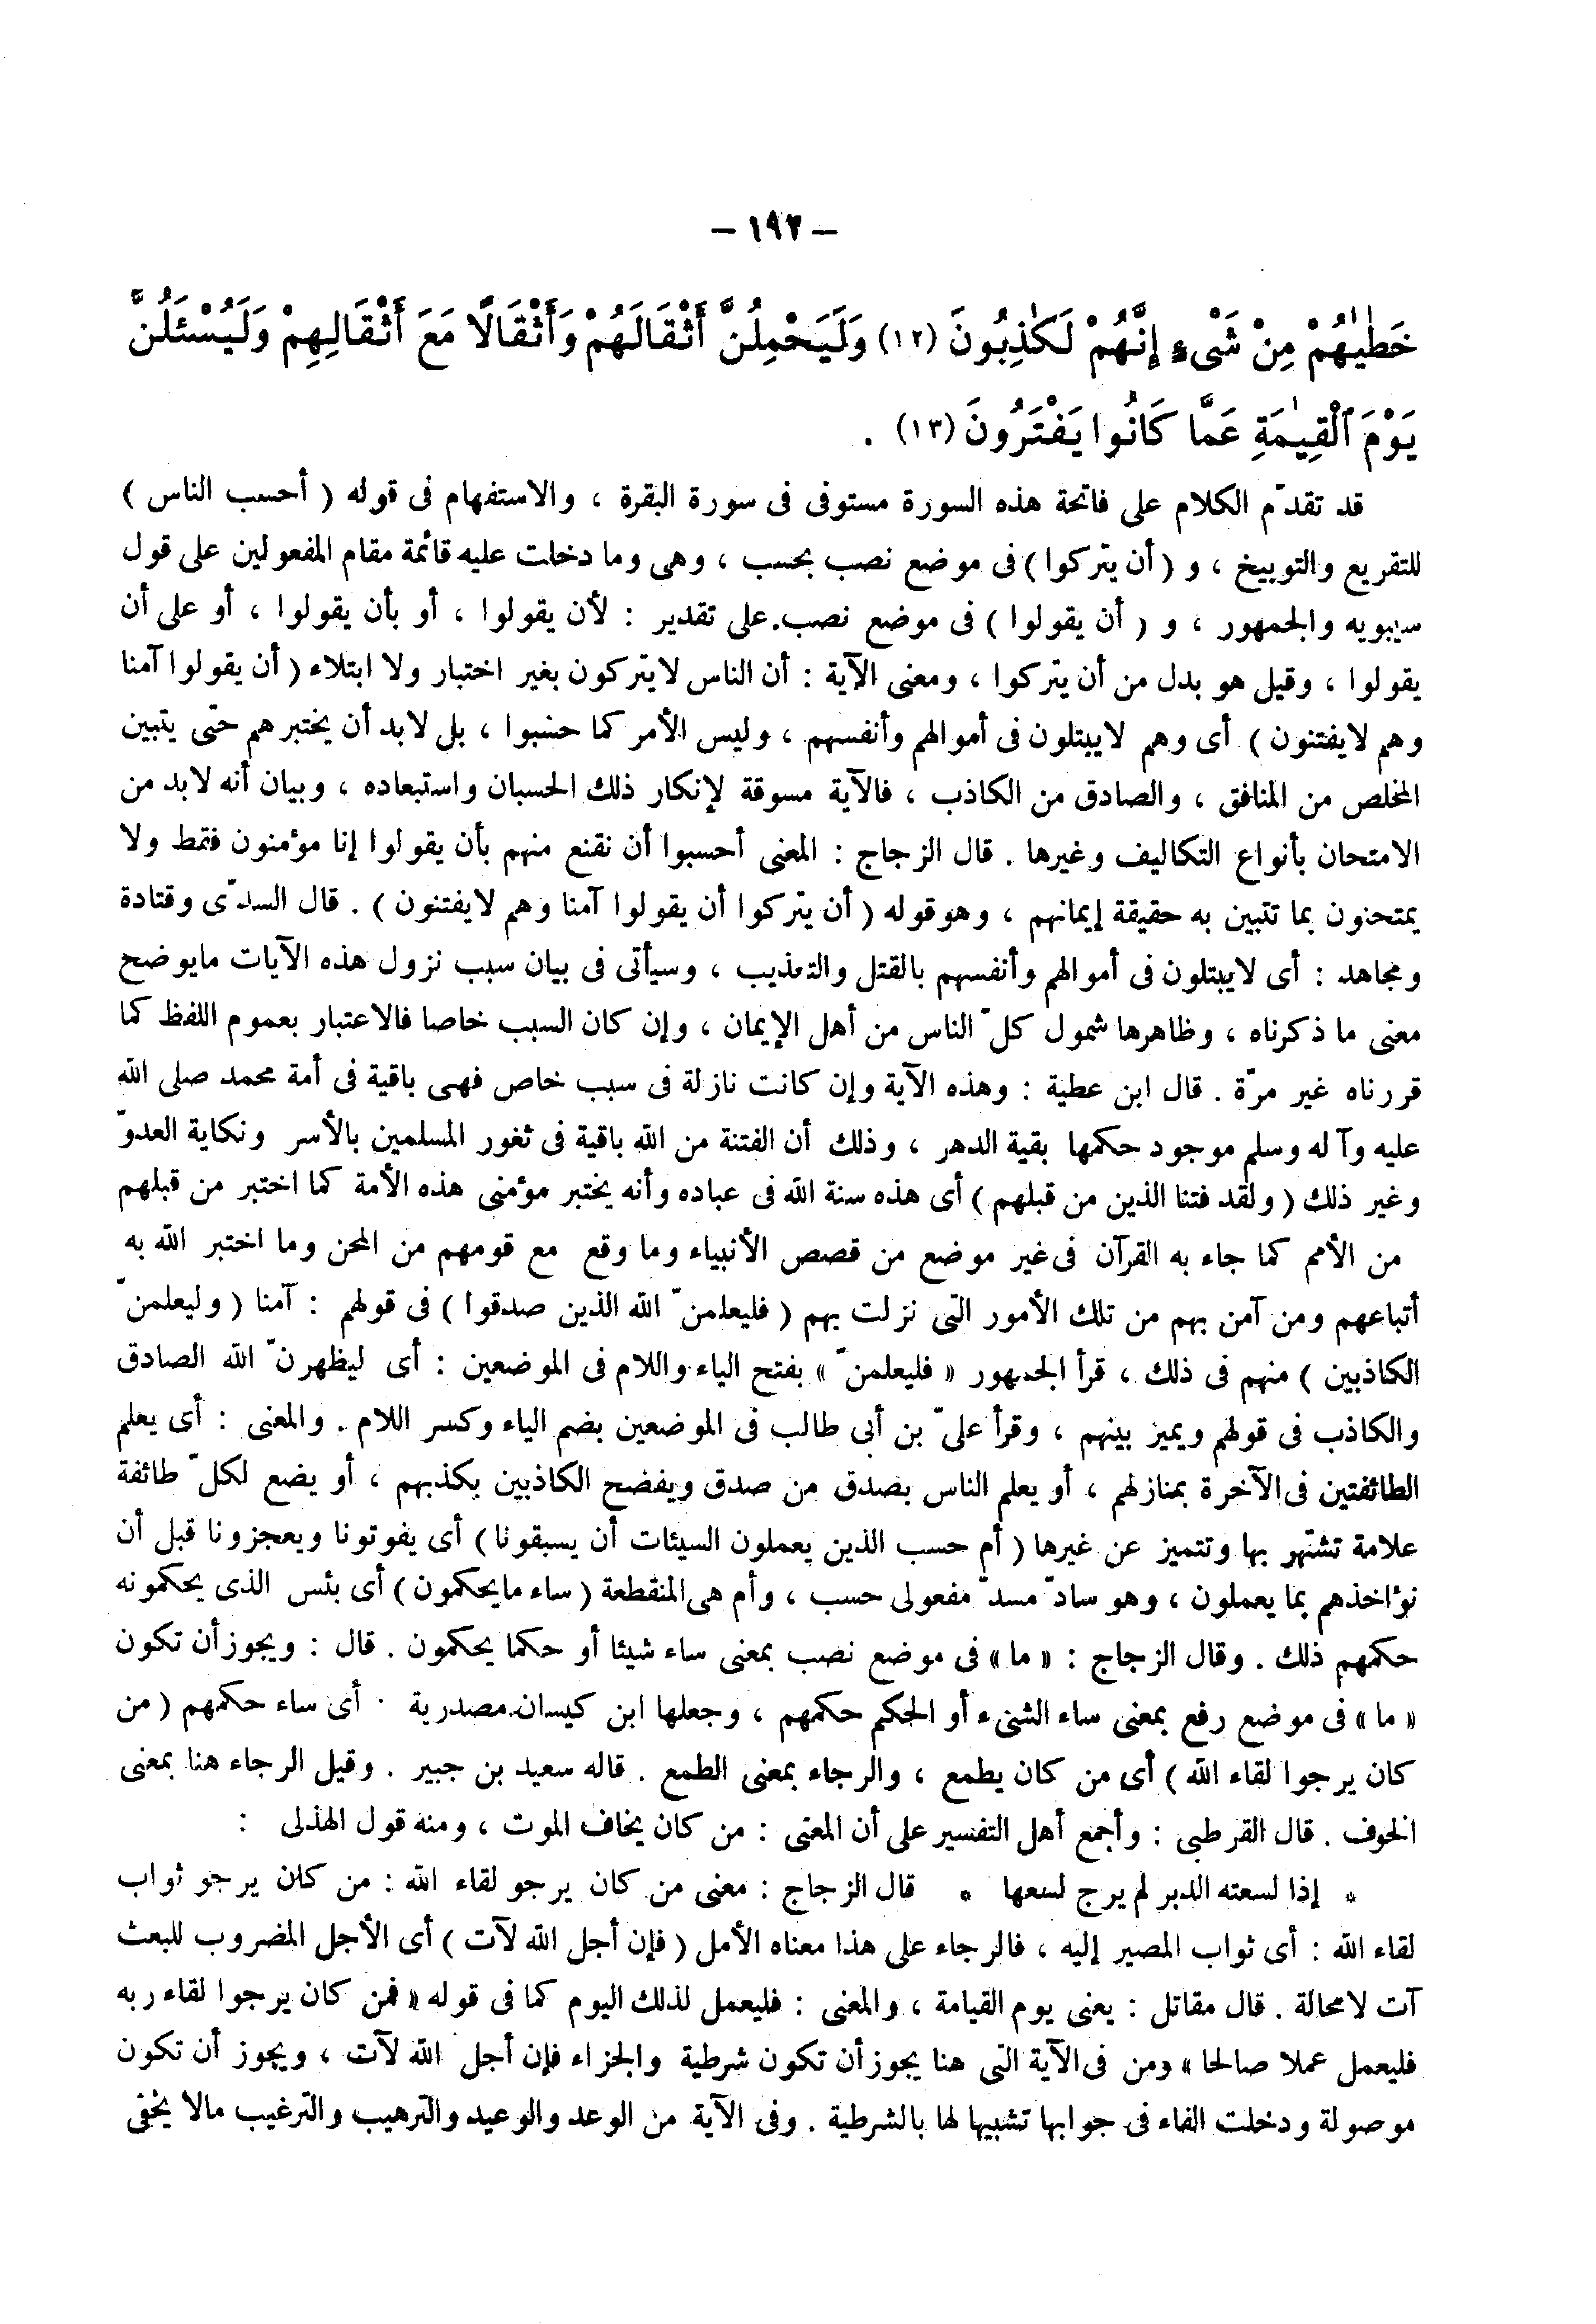 – ١٩٢ –
خَطَٰيَٰهُمْ مِنْ شَىْءٍ إِنَّهُمْ لَكَٰذِبُونَ (١٢) وَلَيَحْمِلُنَّ أَثْقَالَهُمْ وَأَثْقَالًا مَعَ أَثْقَالِهِمْ وَلَيُسْئَلُنَّ
يَوْمَ ٱلْقِيَٰمَةِ عَمَّا كَانُوا يَفْتَرُونَ (١٣) .
قد تقدّم الكلام على فاتحة هذه السورة مستوفى فى سورة البقرة ، والاستفهام فى قوله ( أحسب الناس )
للتقريع والتوبيخ ، و ( أن يتركوا ) فى موضع نصب بحسب ، وهى وما دخلت عليه قائمة مقام المفعولين على قول
سيبويه والجمهور ، و ( أن يقولوا ) فى موضع نصب على تقدير : لأن يقولوا ، أو بأن يقولوا ، أو على أن
يقولوا ، وقيل هو بدل من أن يتركوا ، ومعنى الآية : أن الناس لا يتركون بغير اختبار ولا ابتلاء ( أن يقولوا آمنا
وهم لا يفتنون ) أى وهم لا يبتلون فى أموالهم وأنفسهم ، وليس الأمر كما حسبوا ، بل لابد أن يختبرهم حتى يتبين
المخلص من المنافق ، والصادق من الكاذب ، فالآية مسوقة لإنكار ذلك الحسبان واستبعاده ، وبيان أنه لابد من
الامتحان بأنواع التكاليف وغيرها . قال الزجاج : المعنى أحسبوا أن نقنع منهم بأن يقولوا إنا مؤمنون فقط ولا
يمتحنون بما تتبين به حقيقة إيمانهم ، وهو قوله ( أن يتركوا أن يقولوا آمنا وهم لا يفتنون ) . قال السدّى وقتادة
ومجاهد : أى لا يبتلون فى أموالهم وأنفسهم بالقتل والتعذيب ، وسيأتى فى بيان سبب نزول هذه الآيات مايوضح
معنى ما ذكرناه ، وظاهرها شمول كلّ الناس من أهل الإيمان ، وإن كان السبب خاصا فالاعتبار بعموم اللفظ كما
قررناه غير مرّة . قال ابن عطية : وهذه الآية وإن كانت نازلة فى سبب خاص فهى باقية فى أمة محمد صلى الله
عليه وآله وسلم موجود حكمها بقية الدهر ، وذلك أن الفتنة من الله باقية فى ثغور المسلمين بالأسر ونكاية العدوّ
وغير ذلك ( ولقد فتنا الذين من قبلهم ) أى هذه سنة الله فى عباده وأنه يختبر مؤمنى هذه الأمة كما اختبر من قبلهم
من الأمم كما جاء به القرآن فى غير موضع من قصص الأنبياء وما وقع مع قومهم من المحن وما اختبر الله به
أتباعهم ومن آمن بهم من تلك الأمور التى نزلت بهم ( فليعلمنّ الله الذين صدقوا ) فى قولهم : آمنا ( وليعلمنّ
الكاذبين ) منهم فى ذلك ، قرأ الجمهور « فليعلمنّ » بفتح الياء واللام فى الموضعين : أى ليظهرنّ الله الصادق
والكاذب فى قولهم ويميز بينهم ، وقرأ علىّ بن أبى طالب فى الموضعين بضم الياء وكسر اللام . والمعنى : أى يعلم
الطائفتين فى الآخرة بمنازلهم ، أو يعلم الناس بصدق من صدق ويفضح الكاذبين بكذبهم ، أو يضع لكلّ طائفة
علامة تشتهر بها وتتميز عن غيرها ( أم حسب الذين يعملون السيئات أن يسبقونا ) أى يفوتونا ويعجزونا قبل أن
نؤاخذهم بما يعملون ، وهو سادّ مسدّ مفعولى حسب ، وأم هى المنقطعة ( ساء مايحكمون ) أى بئس الذى يحكمونه
حكمهم ذلك . وقال الزجاج : « ما » فى موضع نصب بمعنى ساء شيئا أو حكما يحكمون . قال : ويجوز أن تكون
« ما » فى موضع رفع بمعنى ساء الشىء أو الحكم حكمهم ، وجعلها ابن كيسان مصدرية . أى ساء حكمهم ( من
كان يرجوا لقاء الله ) أى من كان يطمع ، والرجاء بمعنى الطمع . قاله سعيد بن جبير . وقيل الرجاء هنا بمعنى
الخوف . قال القرطبى : وأجمع أهل التفسير على أن المعنى : من كان يخاف الموت ، ومنه قول الهذلى :
* إذا لسعته الدبر لم يرج لسعها * قال الزجاج : معنى من كان يرجو لقاء الله : من كان يرجو ثواب
لقاء الله : أى ثواب المصير إليه ، فالرجاء على هذا معناه الأمل ( فإن أجل الله لآت ) أى الأجل المضروب للبعث
آت لا محالة . قال مقاتل : يعنى يوم القيامة ، والمعنى : فليعمل لذلك اليوم كما فى قوله « فمن كان يرجوا لقاء ربه
فليعمل عملا صالحا » ومن فى الآية التى هنا يجوز أن تكون شرطية والجزاء فإن أجل الله لآت ، ويجوز أن تكون
موصولة ودخلت الفاء فى جوابها تشبيها لها بالشرطية . وفى الآية من الوعد والوعيد والترهيب والترغيب مالا يخفى